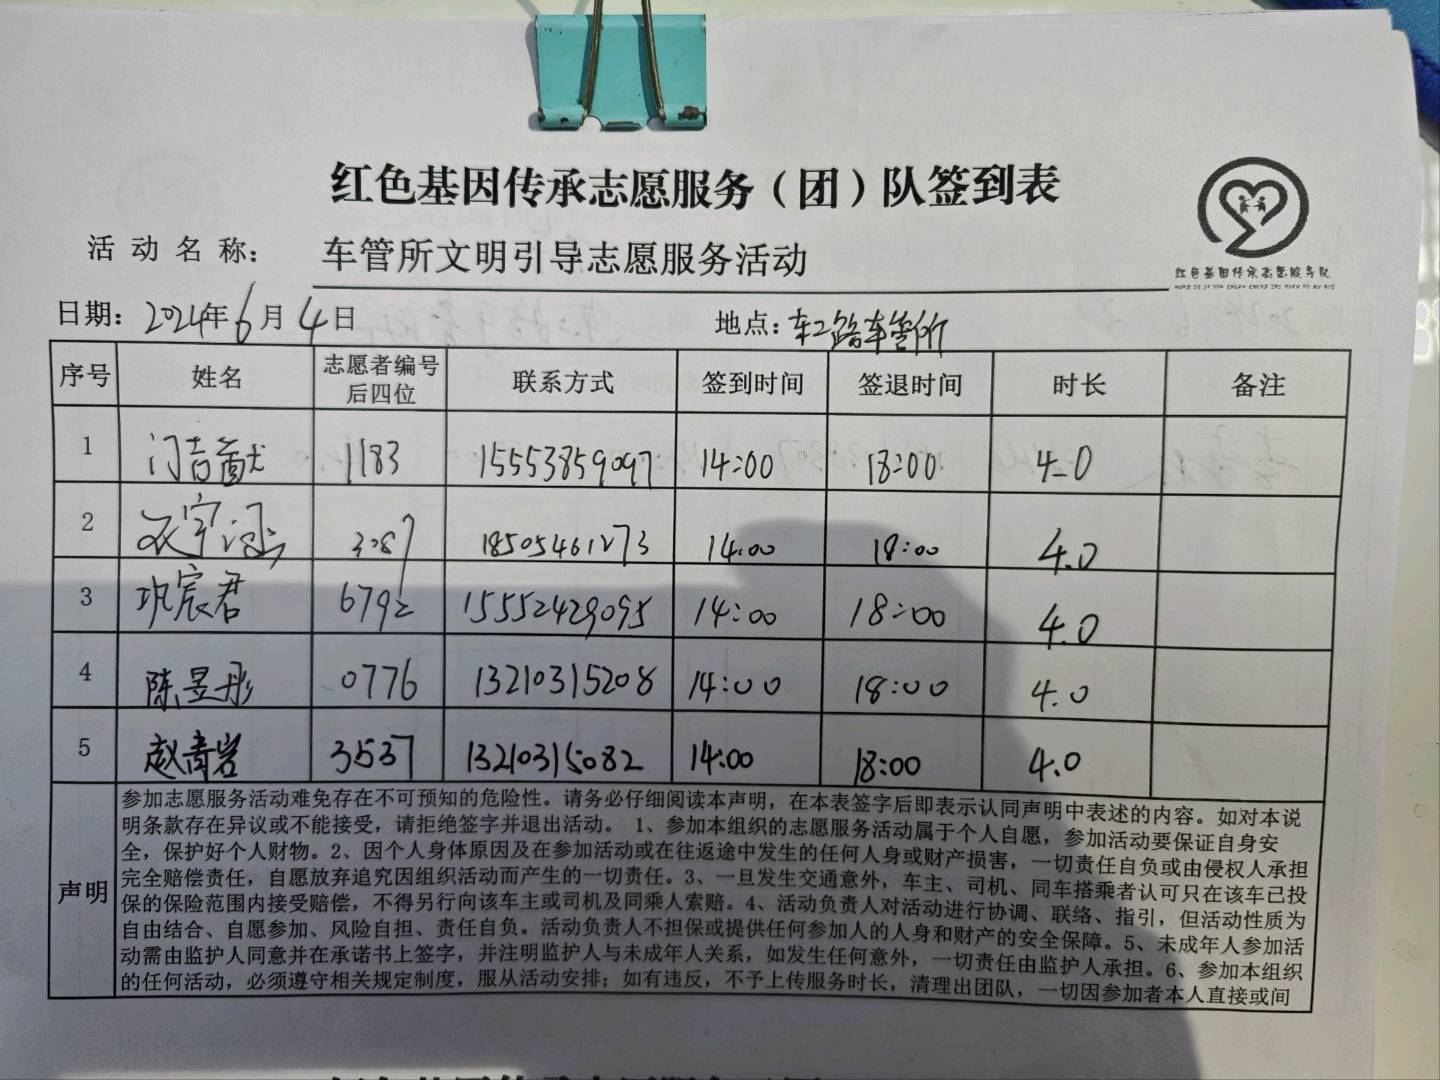 红色基因传承志愿服务（团）队签到表
红色基因传承志愿服务队
活动名称： 车管所文明引导志愿服务活动
日期：2024年6月4日 地点：车工路车管所
序号 姓名 志愿者编号后四位 联系方式 签到时间 签退时间 时长 备注
1 门吉猷 1183 15553859097 14:00 18:00 4.0
2 3087 18505461273 14:00 18:00 4.0
3 巩宸君 6792 15552429095 14:00 18:00 4.0
4 陈昱彤 0776 13210315208 14:00 18:00 4.0
5 赵青岩 3537 13210315082 14:00 18:00 4.0
声明
参加志愿服务活动难免存在不可预知的危险性。请务必仔细阅读本声明，在本表签字后即表示认同声明中表述的内容。如对本说
明条款存在异议或不能接受，请拒绝签字并退出活动。 1、参加本组织的志愿服务活动属于个人自愿，参加活动要保证自身安
全，保护好个人财物。2、因个人身体原因及在参加活动或在往返途中发生的任何人身或财产损害，一切责任自负或由侵权人承担
完全赔偿责任，自愿放弃追究因组织活动而产生的一切责任。3、一旦发生交通意外，车主、司机、同车搭乘者认可只在该车已投
保的保险范围内接受赔偿，不得另行向该车主或司机及同乘人索赔。4、活动负责人对活动进行协调、联络、指引，但活动性质为
自由结合、自愿参加、风险自担、责任自负。活动负责人不担保或提供任何参加人的人身和财产的安全保障。5、未成年人参加活
动需由监护人同意并在承诺书上签字，并注明监护人与未成年人关系，如发生任何意外，一切责任由监护人承担。6、参加本组织
的任何活动，必须遵守相关规定制度，服从活动安排；如有违反，不予上传服务时长，清理出团队，一切因参加者本人直接或间